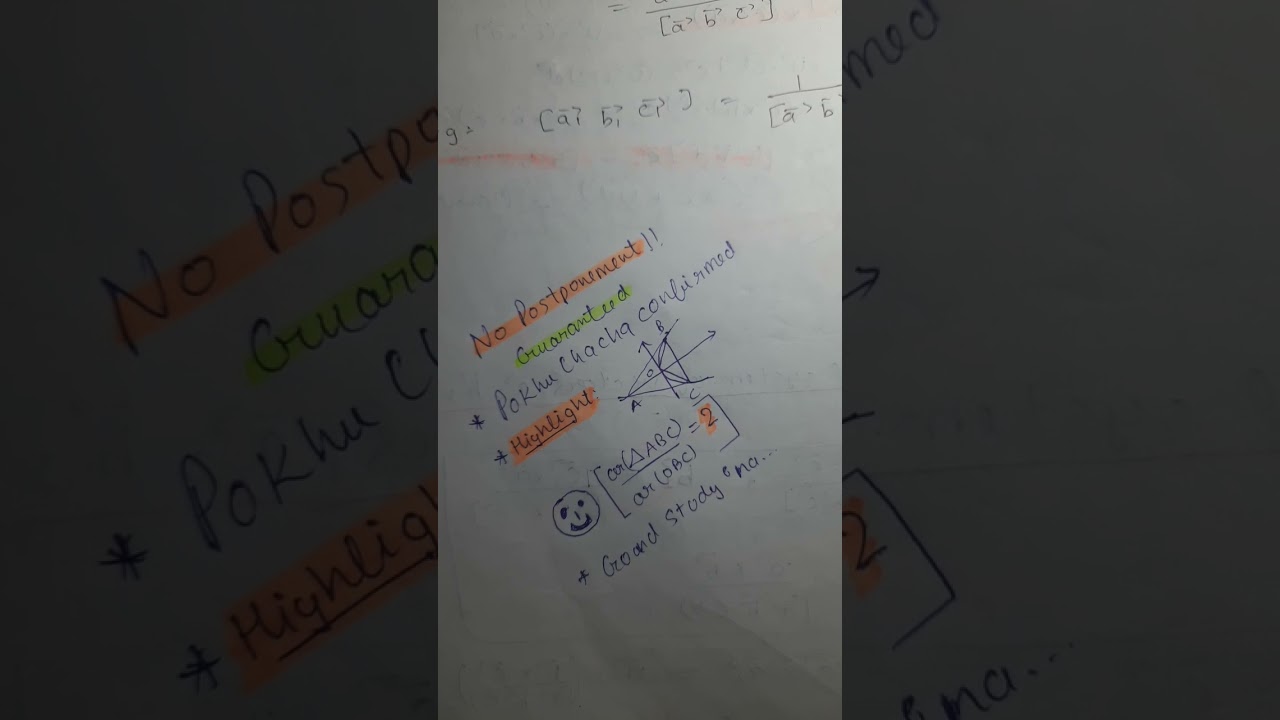 [a⃗ b⃗ c⃗]
[a⃗₁ b⃗₁ c⃗₁] = 1/[a⃗ b⃗
No Postponement!!
Guaranteed
* Pokhu Chacha confirmed
* Highlight:
B
O
A C
[ar(△ABC)/ar(OBC) = 2]
* Grand study